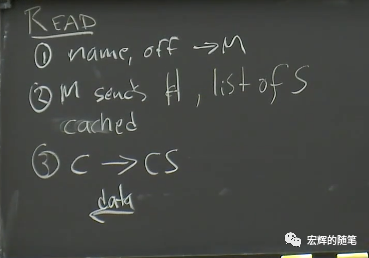 READ
① name, off → M
② M sends H, list of S
cached
③ C → CS
data
←
宏辉的随笔